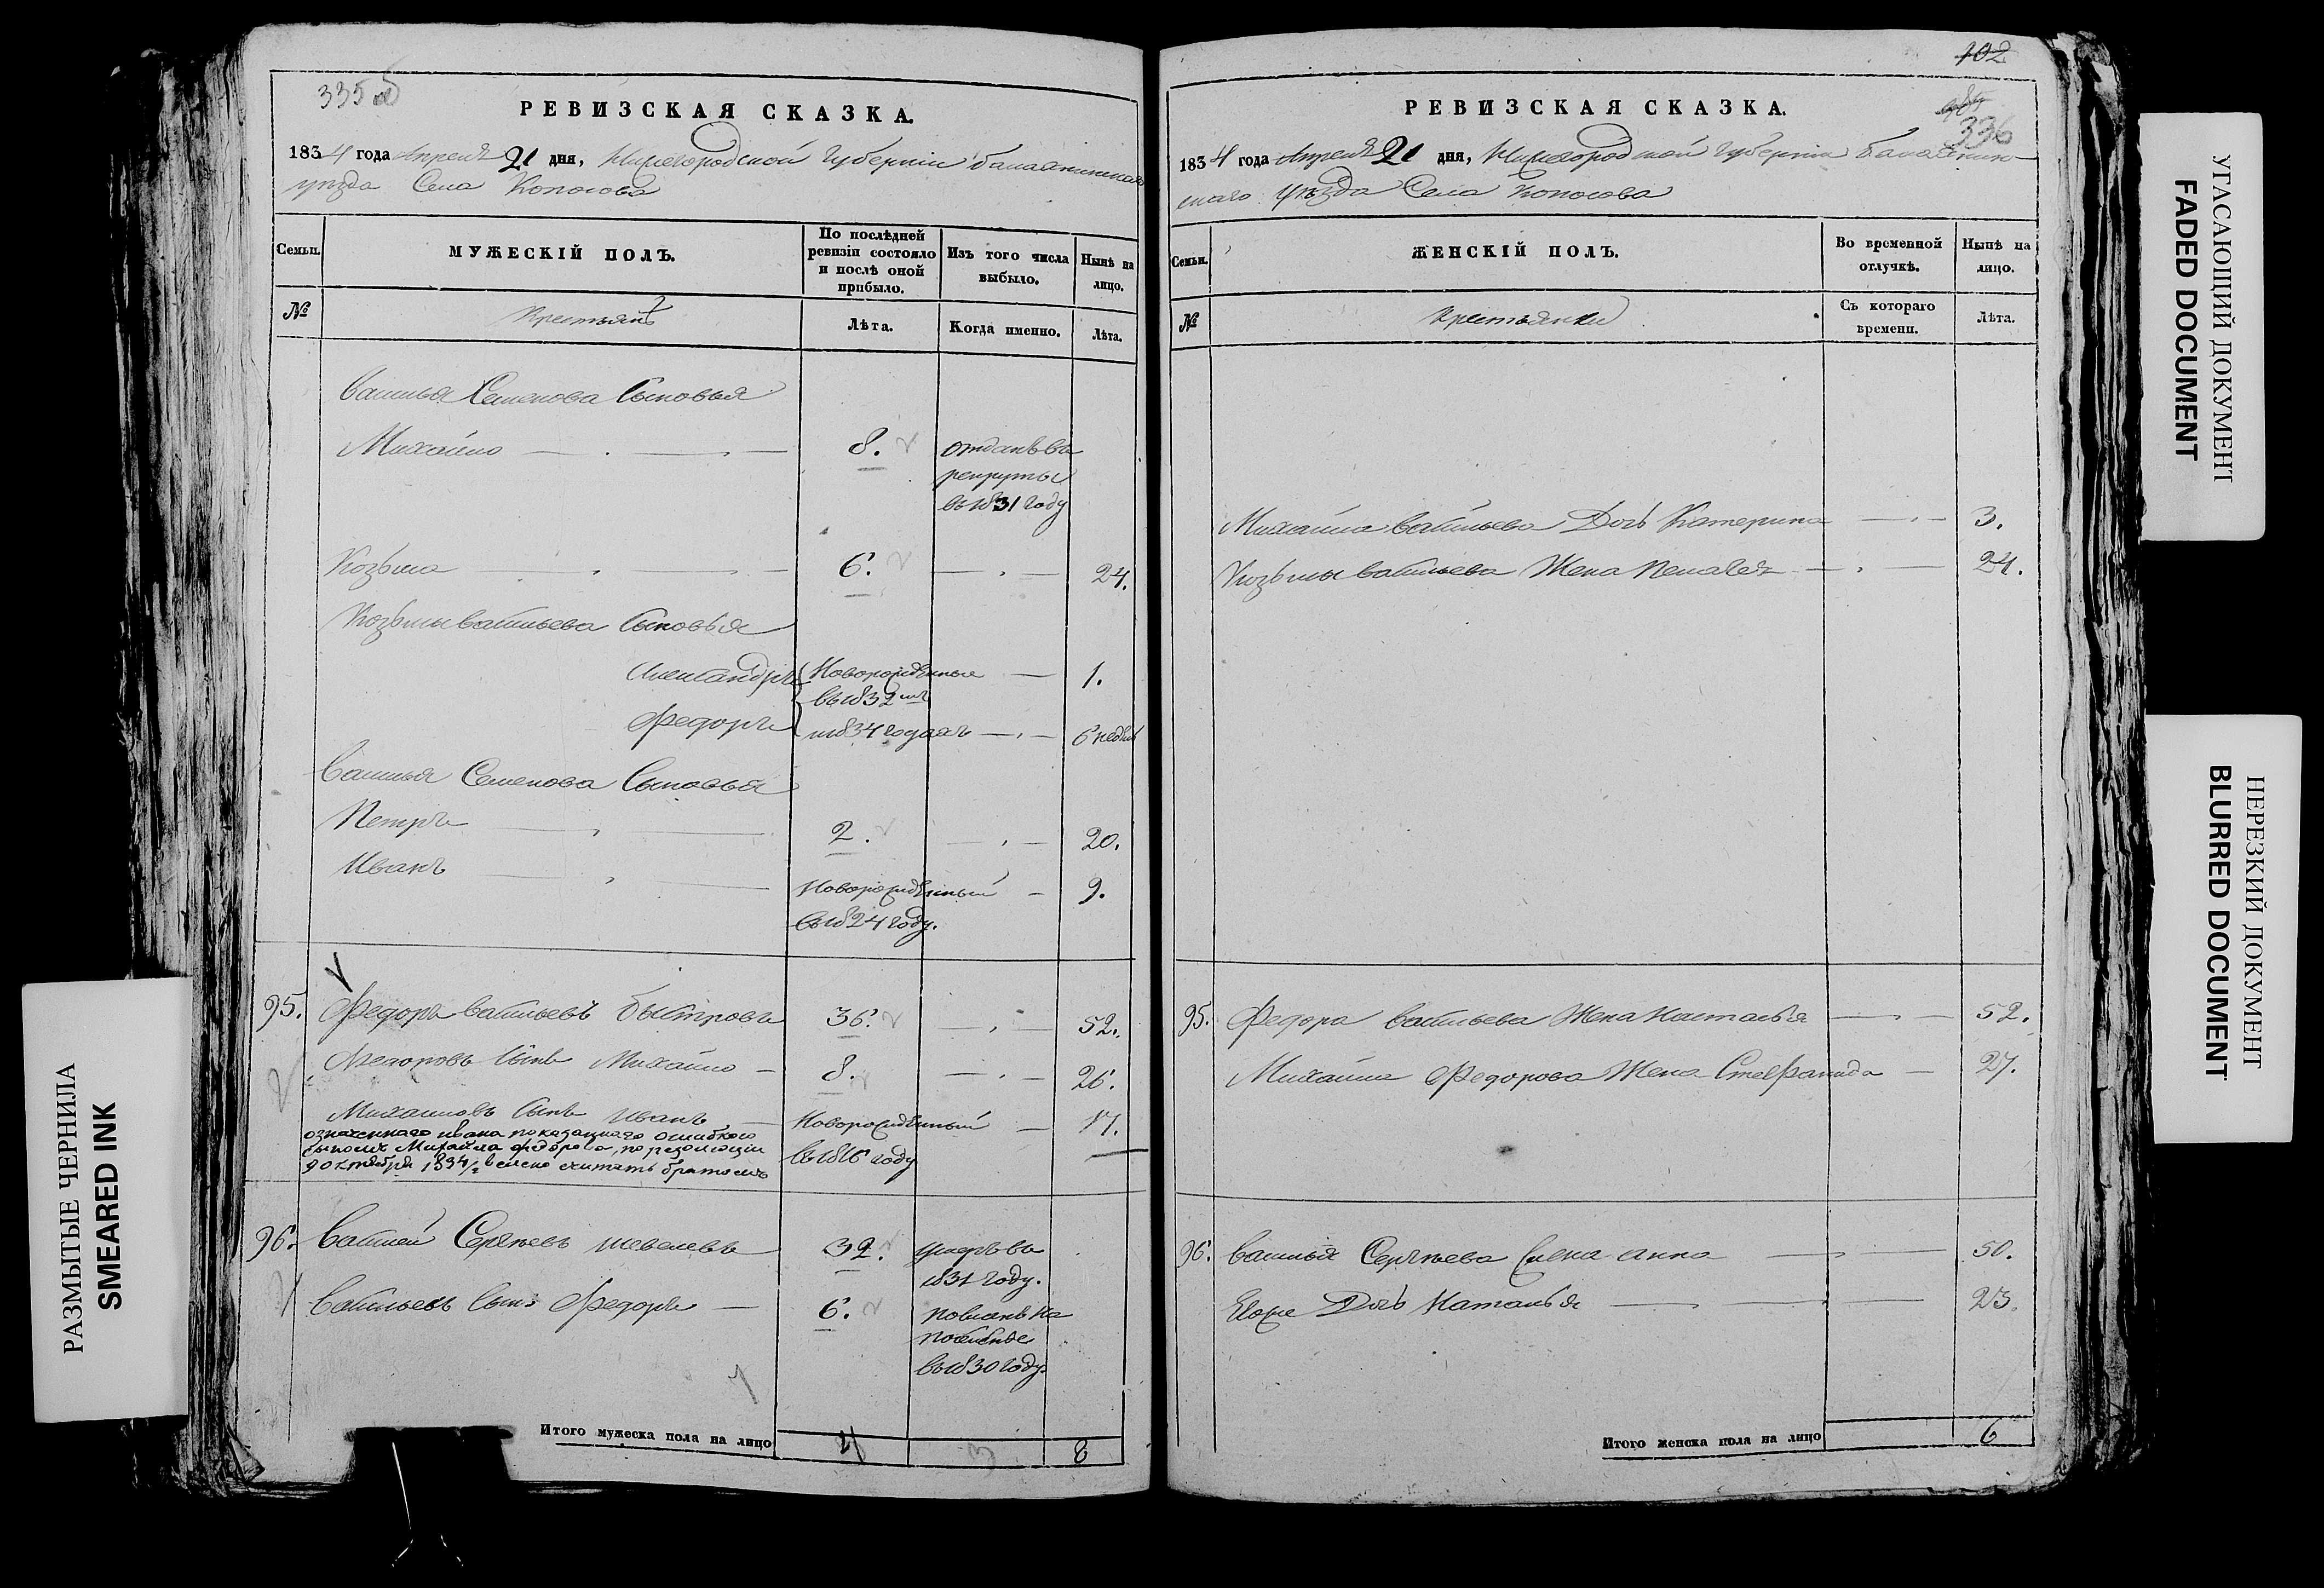 335 об
РЕВИЗСКАЯ СКАЗКА.
1834 года Апреля 21 дня, Нижегородской губернии Балахнинскаго
уезда Села Копосова
Семьи. МУЖЕСКІЙ ПОЛЪ. По послѣдней ревизіи состояло и послѣ оной прибыло. Изъ того числа выбыло. Нынѣ на лицо.
№ Крестьянъ Лѣта. Когда именно. Лѣта.
Василья Семенова Сыновья
Михайло 8. отданъ въ
рекруты
въ 1831 году
Козьма 6. 24.
Козьмы Васильева Сыновья
Александръ Новорожденные 1.
въ 1832мъ
Федоръ и 1834 годахъ 6 недель
Василья Семенова Сыновья
Петръ 2. 20.
Иванъ Новорожденный 9.
въ 1824 году.
95. Федоръ Васильевъ Быстровъ 36. 52.
Федоровъ Сынъ Михайло 8. 26.
Михаиловъ Сынъ Иванъ Новорожденный 17.
означеннаго Ивана показаннаго ошибкою
сыномъ Михайла Федорова, по резолюции въ 1816 году
9 октября 1834/2 велено считать братомъ
96. Василей Сергѣевъ Шевелевъ 32. умеръ въ
1831 году.
Васильевъ Сынъ Федоръ 6. посланъ на
поселение
въ 1830 году.
Итого мужеска пола на лицо 4 3 8
102
336
РЕВИЗСКАЯ СКАЗКА.
1834 года Апреля 21 дня, Нижегородской губернии Балахнин-
скаго Уѣзда Села Копосова
Семьи. ЖЕНСКІЙ ПОЛЪ. Во временной отлучкѣ. Нынѣ на лицо.
№ Крестьянки Съ котораго времени. Лѣта.
Михаила Васильева Дочь Катерина 3.
Козьмы Васильева Жена Пелагея 24.
95. Федора Васильева Жена Настасья 52.
Михаила Федорова Жена Стефанида 27.
96. Василья Сергѣева Жена Анна 50.
Ево же Дочь Наталья 23.
Итого женска пола на лицо 6
РАЗМЫТЫЕ ЧЕРНИЛА
SMEARED INK
УГАСАЮЩИЙ ДОКУМЕНТ
FADED DOCUMENT
НЕРЕЗКИЙ ДОКУМЕНТ
BLURRED DOCUMENT